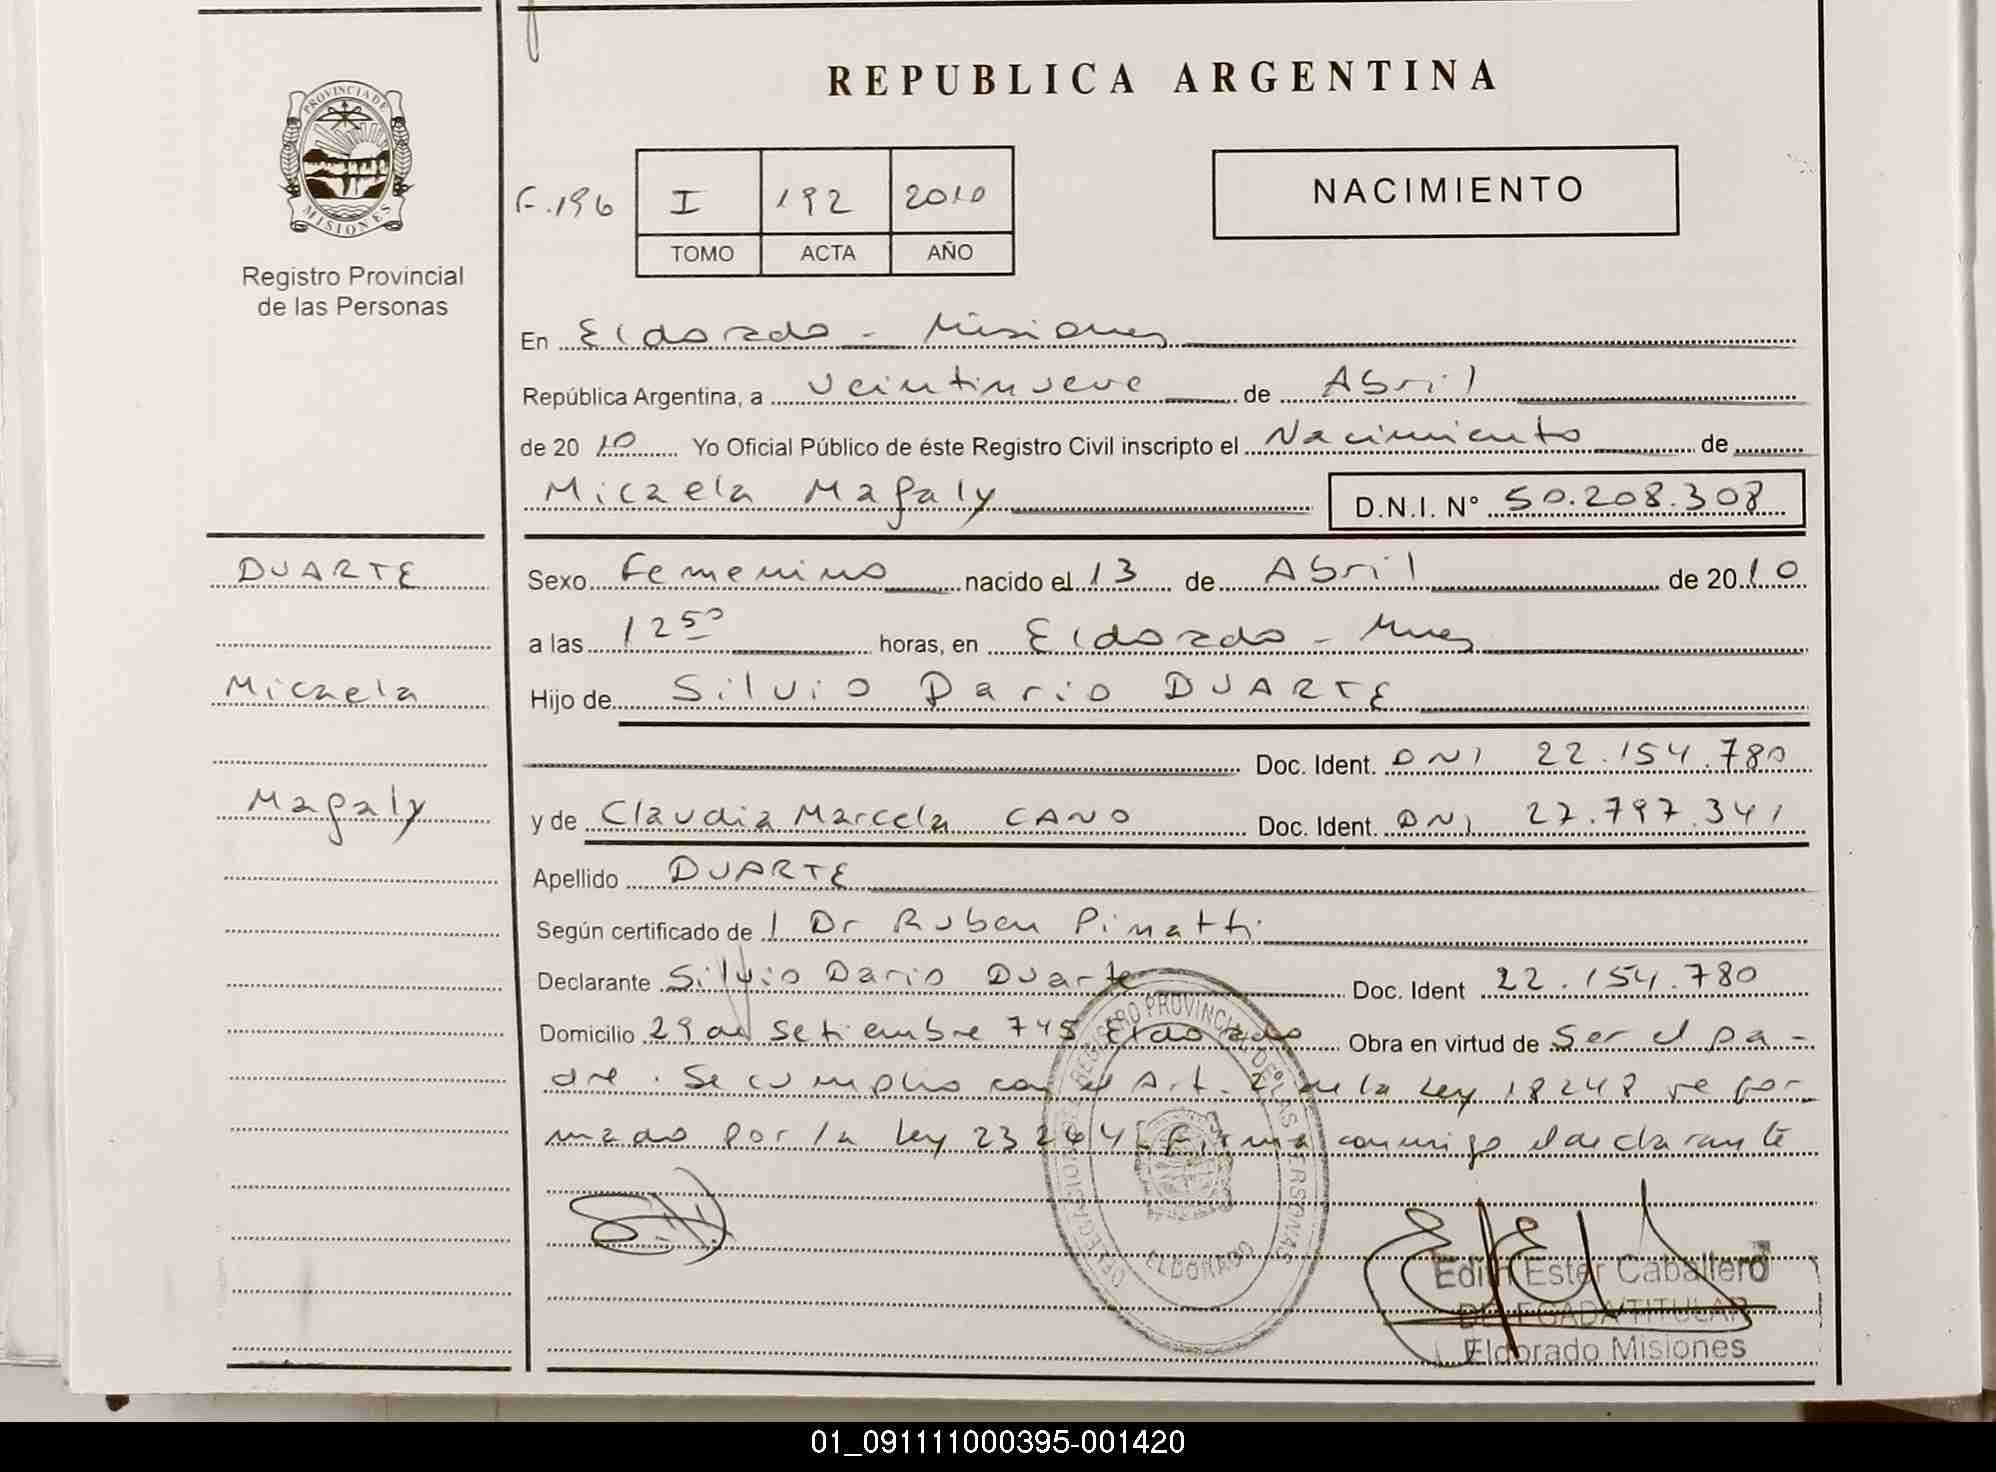 REPUBLICA ARGENTINA
PROVINCIA DE MISIONES
Registro Provincial
de las Personas
F.196
I 192 2010
TOMO ACTA AÑO
NACIMIENTO
En Eldorado - Misiones
República Argentina, a veintinueve de Abril
de 2010 Yo Oficial Público de éste Registro Civil inscripto el Nacimiento de
Micaela Magaly D.N.I. N° 50.208.308
DUARTE
Micaela
Magaly
Sexo Femenino nacido el 13 de Abril de 2010
a las 12 50 horas, en Eldorado - Mnes
Hijo de Silvio Dario DUARTE
Doc. Ident. DNI 22.154.780
y de Claudia Marcela CANO Doc. Ident. DNI 27.797.341
Apellido DUARTE
Según certificado de l Dr Ruben Pimatti
Declarante Silvio Dario Duarte Doc. Ident 22.154.780
Domicilio 29 de Setiembre 745 Eldorado Obra en virtud de Ser el pa-
dre. Se cumplio con el Art. 2° de la Ley 18248 re for-
mado por la Ley 23264 Firma conmigo el declarante
REGISTRO PROVINCIAL DE LAS PERSONAS
ELDORADO
Edith Ester Caballero
DELEGADA TITULAR
Eldorado Misiones
01_091111000395-001420